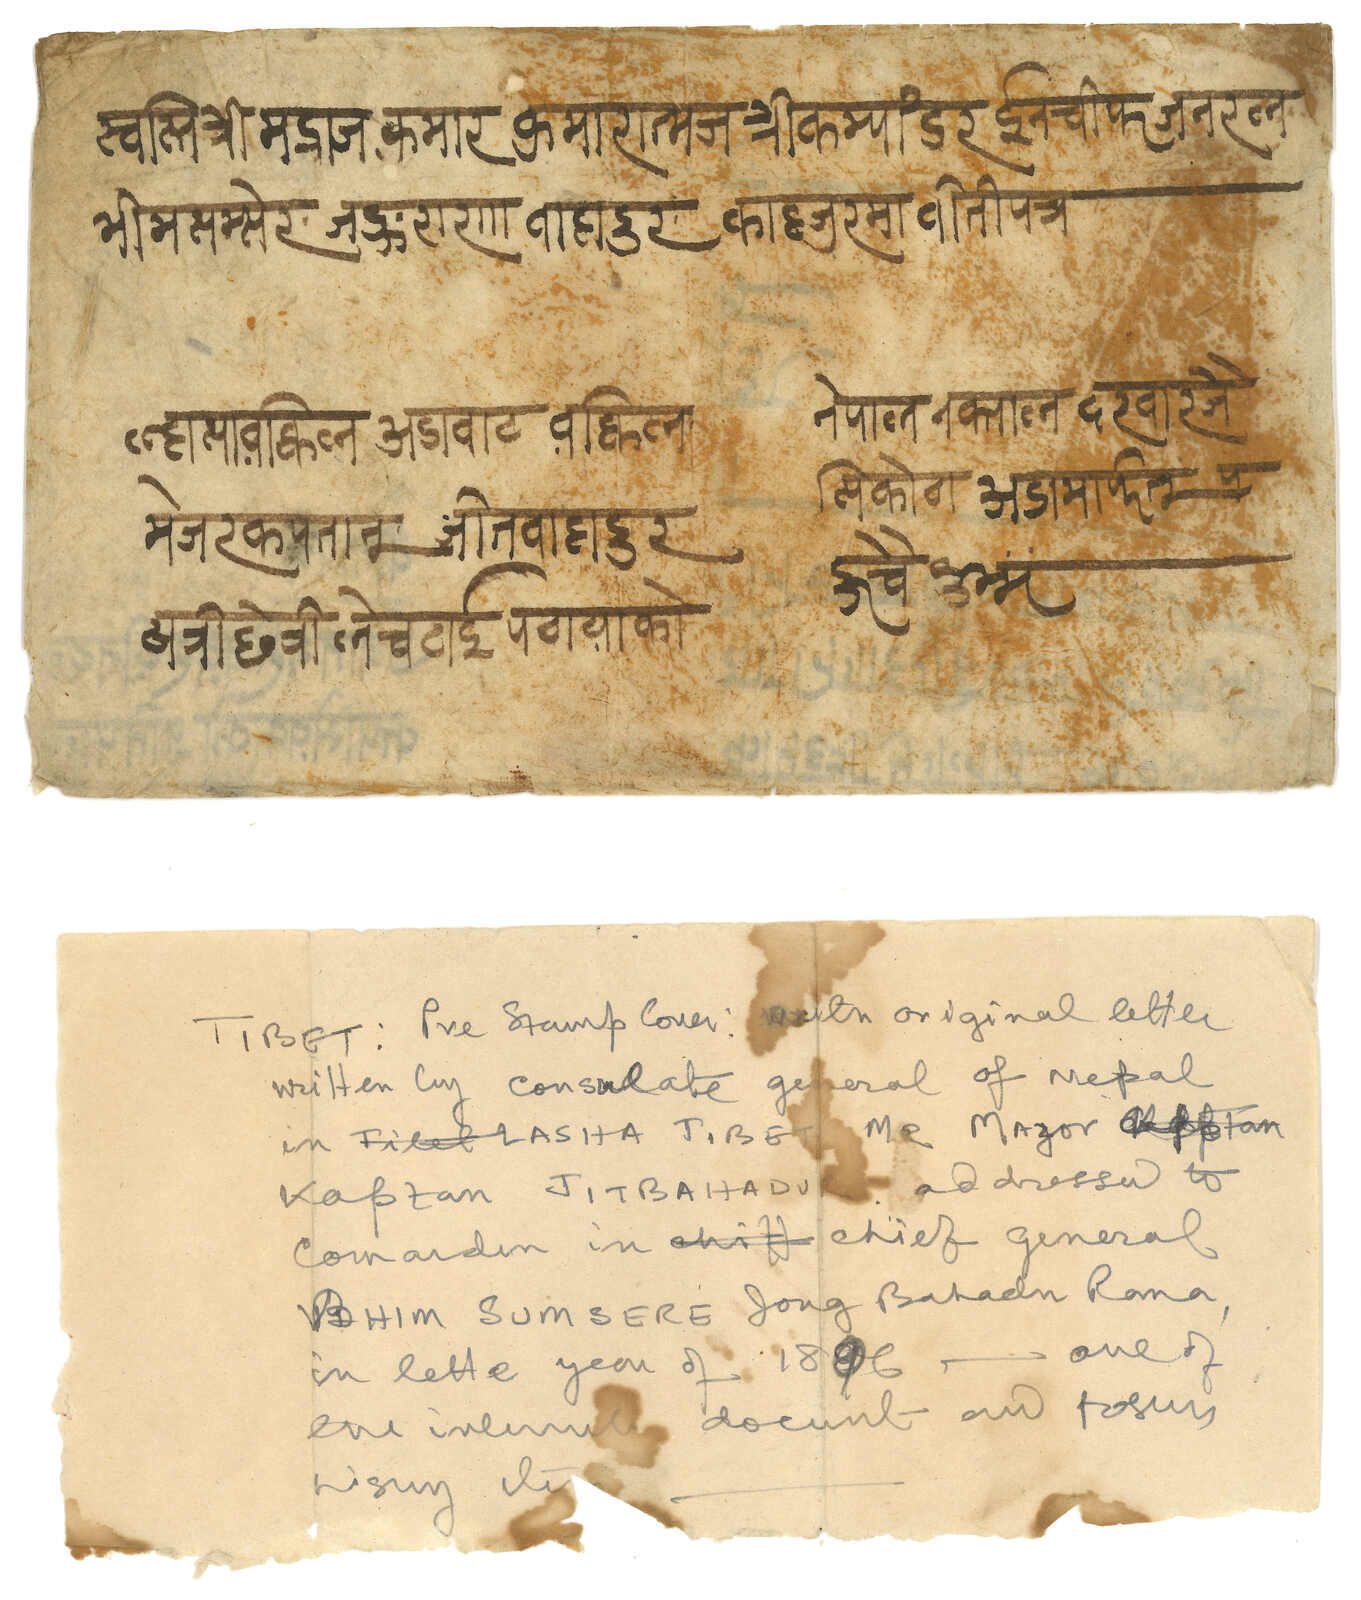 स्वस्तिश्रीमद्राजकुमार कुमारात्मज श्रीकम्यांडर ईनचीफ जनरल्न
भीमसम्सेर जङ्गराणा वाहादुर काहजुरमा वीतीपत्र
ल्हासावकिल्न अडावाट वकिल्न
मेजरकपतान जीतवाहादुर
अत्रीछेत्री ले चढाई पठायाको
नेपाल्न नक्साल्न दरवारजै
सिकोठा अडामार्फत प
हुचै शुभम्
TIBET: Pre Stamp Cover: with original letter
written by consulate general of Nepal
in LASHA TIBET Mr Mazor
Kaptan JITBAHADUR addressed to
Comarden in chief general
BHIM SUMSERE Jong Bahadu Rana,
in lette year of 1896 — one of
docunt and